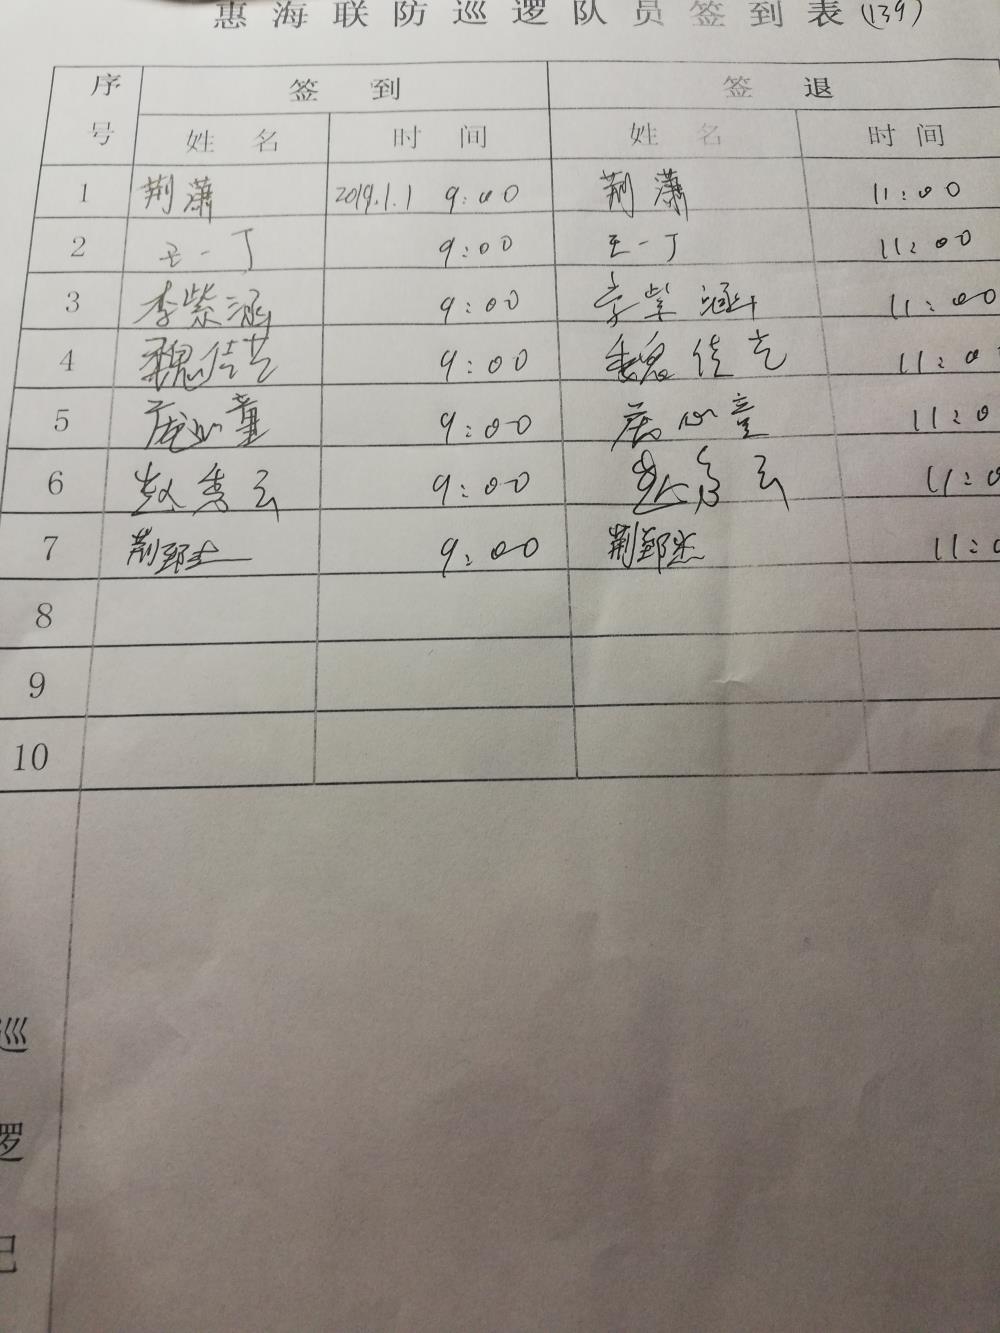 惠海联防巡逻队员签到表(139)
序号 签到 签退
姓名 时间 姓名 时间
1 荆潇 2019.1.1 9:00 荆潇 11:00
2 王一丁 9:00 王一丁 11:00
3 李紫涵 9:00 李紫涵 11:00
4 魏佳艺 9:00 魏佳艺 11:0
5 9:00 11:0
6 赵秀云 9:00 赵秀云 11:0
7 荆郅杰 9:00 荆郅杰 11:0
8
9
10
巡
逻
记